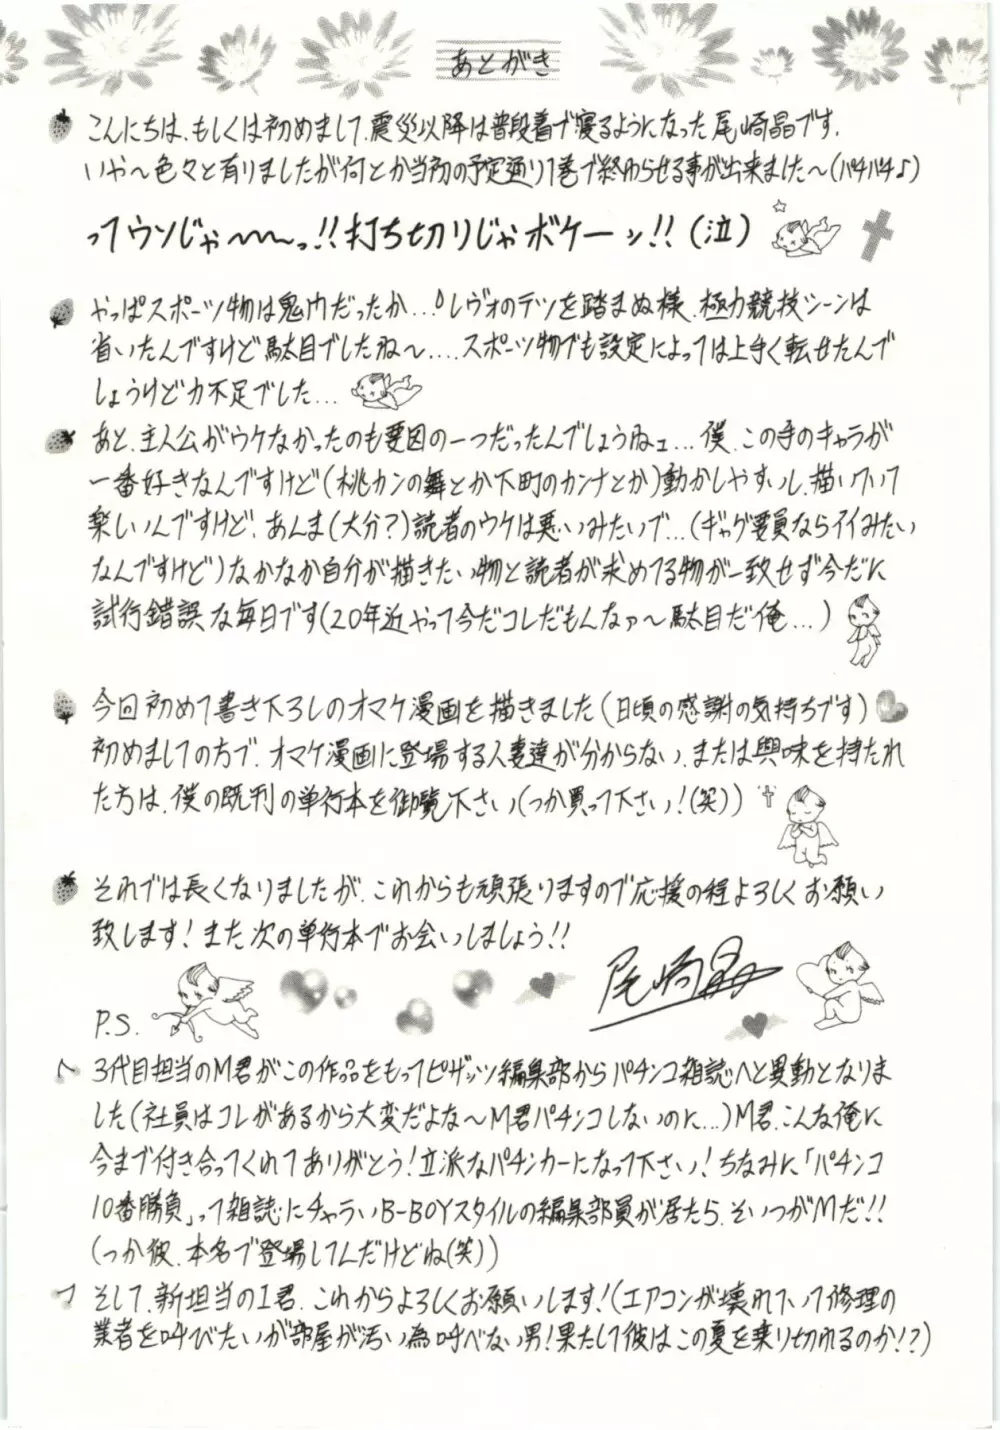 あとがき
こんにちは、もしくは初めまして、震災以降は普段着で寝るようになった尾崎晶です。
いや〜色々と有りましたが何とか当初の予定通り1巻で終わらせる事が出来ました〜(パチパチ♪)
ってウソじゃ〜〜〜っ!!打ち切りじゃボケーッ!!(泣)
やっぱスポーツ物は鬼門だったか…!レヴォのテツを踏まぬ様、極力競技シーンは
省いたんですけど駄目でしたね〜....スポーツ物でも設定によっては上手く転せたんで
しょうけど力不足でした...
あと、主人公がウケなかったのも要因の一つだったんでしょうねェ...僕、この手のキャラが
一番好きなんですけど(桃カンの舞とか下町のカンナとか)動かしやすいし、描いていて
楽しいんですけど、あんま(大分?)読者のウケは悪いみたいで...(ギャグ要員ならイイみたい
なんですけど)なかなか自分が描きたい物と読者が求めてる物が一致せず今だに
試行錯誤な毎日です(20年近やって今だコレだもんなァ〜駄目だ俺...)
今回初めて書き下ろしのオマケ漫画を描きました(日頃の感謝の気持ちです)
初めましての方で、オマケ漫画に登場する人妻達が分からない、または興味を持たれ
た方は、僕の既刊の単行本を御覧下さい(つか買って下さい!(笑))
それでは長くなりましたが、これからも頑張りますので応援の程よろしくお願い
致します!また次の単行本でお会いしましょう!!
尾崎晶
P.S.
3代目担当のM君がこの作品をもってピザッツ編集部からパチンコ雑誌へと異動となりま
した(社員はコレがあるから大変だよな〜M君パチンコしないのに...)M君、こんな俺に
今まで付き合ってくれてありがとう!立派なパチンカーになって下さい!ちなみに「パチンコ
10番勝負」って雑誌にチャラいB-BOYスタイルの編集部員が居たら、そいつがMだ!!
(つか彼、本名で登場してんだけどね(笑))
そして、新担当のI君、これからよろしくお願いします!(エアコンが壊れていて修理の
業者を呼びたいが部屋が汚い為呼べない男!果たして彼はこの夏を乗り切れるのか!?)